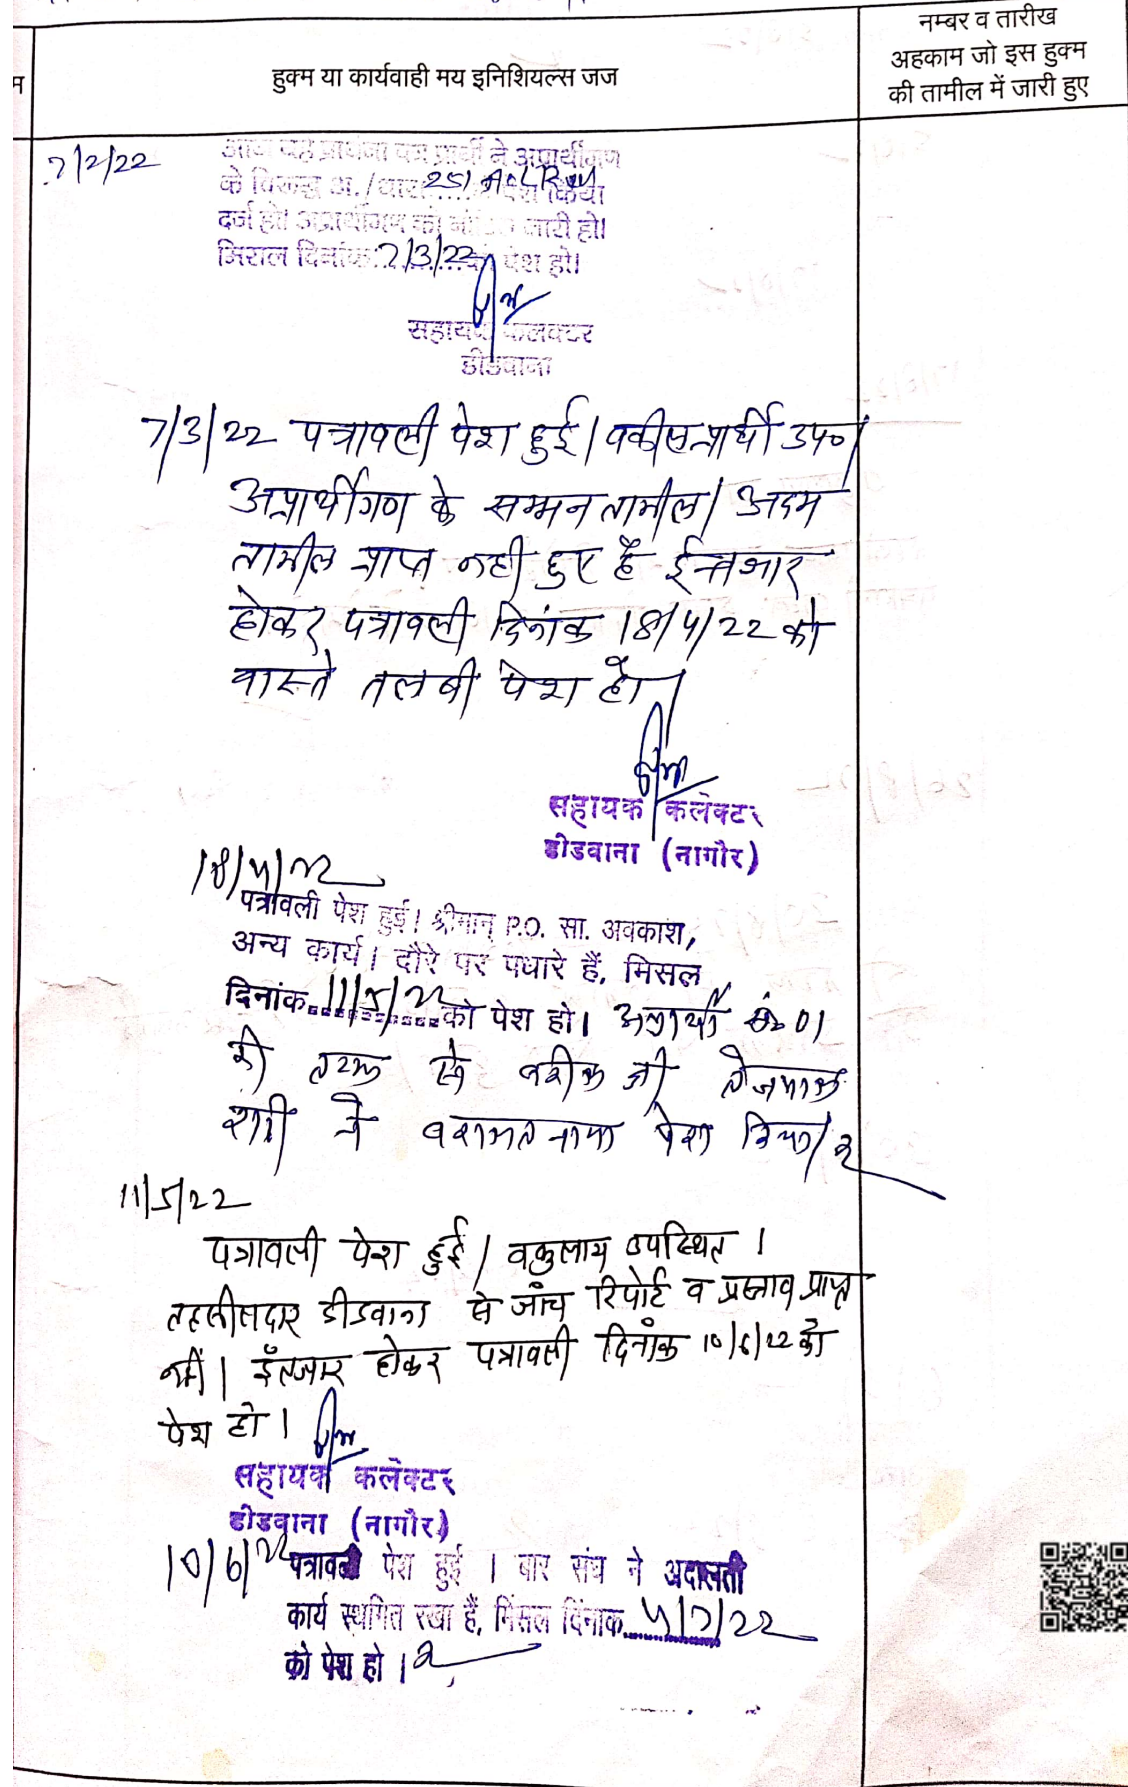 नम्बर व तारीख
अहकाम जो इस हुक्म
की तामील में जारी हुए
हुक्म या कार्यवाही मय इनिशियल्स जज
7/2/22
आज यह प्रार्थना पत्र प्रार्थी ने अप्रार्थीगण
के विरूद्ध अ./धारा 251 पेश किया
दर्ज हो। अप्रार्थीगण को नोटिस जारी हो।
मिसल दिनांक 7/3/22 को पेश हो।
सहायक कलक्टर
डीडवाना
7/3/22 पत्रावली पेश हुई। वकील प्रार्थी उप०।
अप्रार्थीगण के सम्मन तामील/अदम
तामील प्राप्त नही हुए है ईन्तजार
होकर पत्रावली दिनांक 18/4/22 को
वास्ते तलबी पेश हो।
सहायक कलेक्टर
डीडवाना (नागौर)
18/4/22
पत्रावली पेश हुई। श्रीमान् P.O. सा. अवकाश,
अन्य कार्य। दौरे पर पधारे हैं, मिसल
दिनांक 11/5/22 को पेश हो। अप्रार्थी सं० 01
की तरफ से वकील श्री
ने वकालतनामा पेश किया।
11/5/22
पत्रावली पेश हुई। वकुलाय उपस्थित।
तहसीलदार डीडवाना से जाँच रिपोर्ट व प्रस्ताव प्राप्त
नहीं। इंतजार होकर पत्रावली दिनांक 10/6/22 को
पेश हो।
सहायक कलेक्टर
डीडवाना (नागौर)
10/6/22 पत्रावली पेश हुई । बार संघ ने अदालती
कार्य स्थगित रखा हैं, मिसल दिनांक 4/7/22
को पेश हो ।